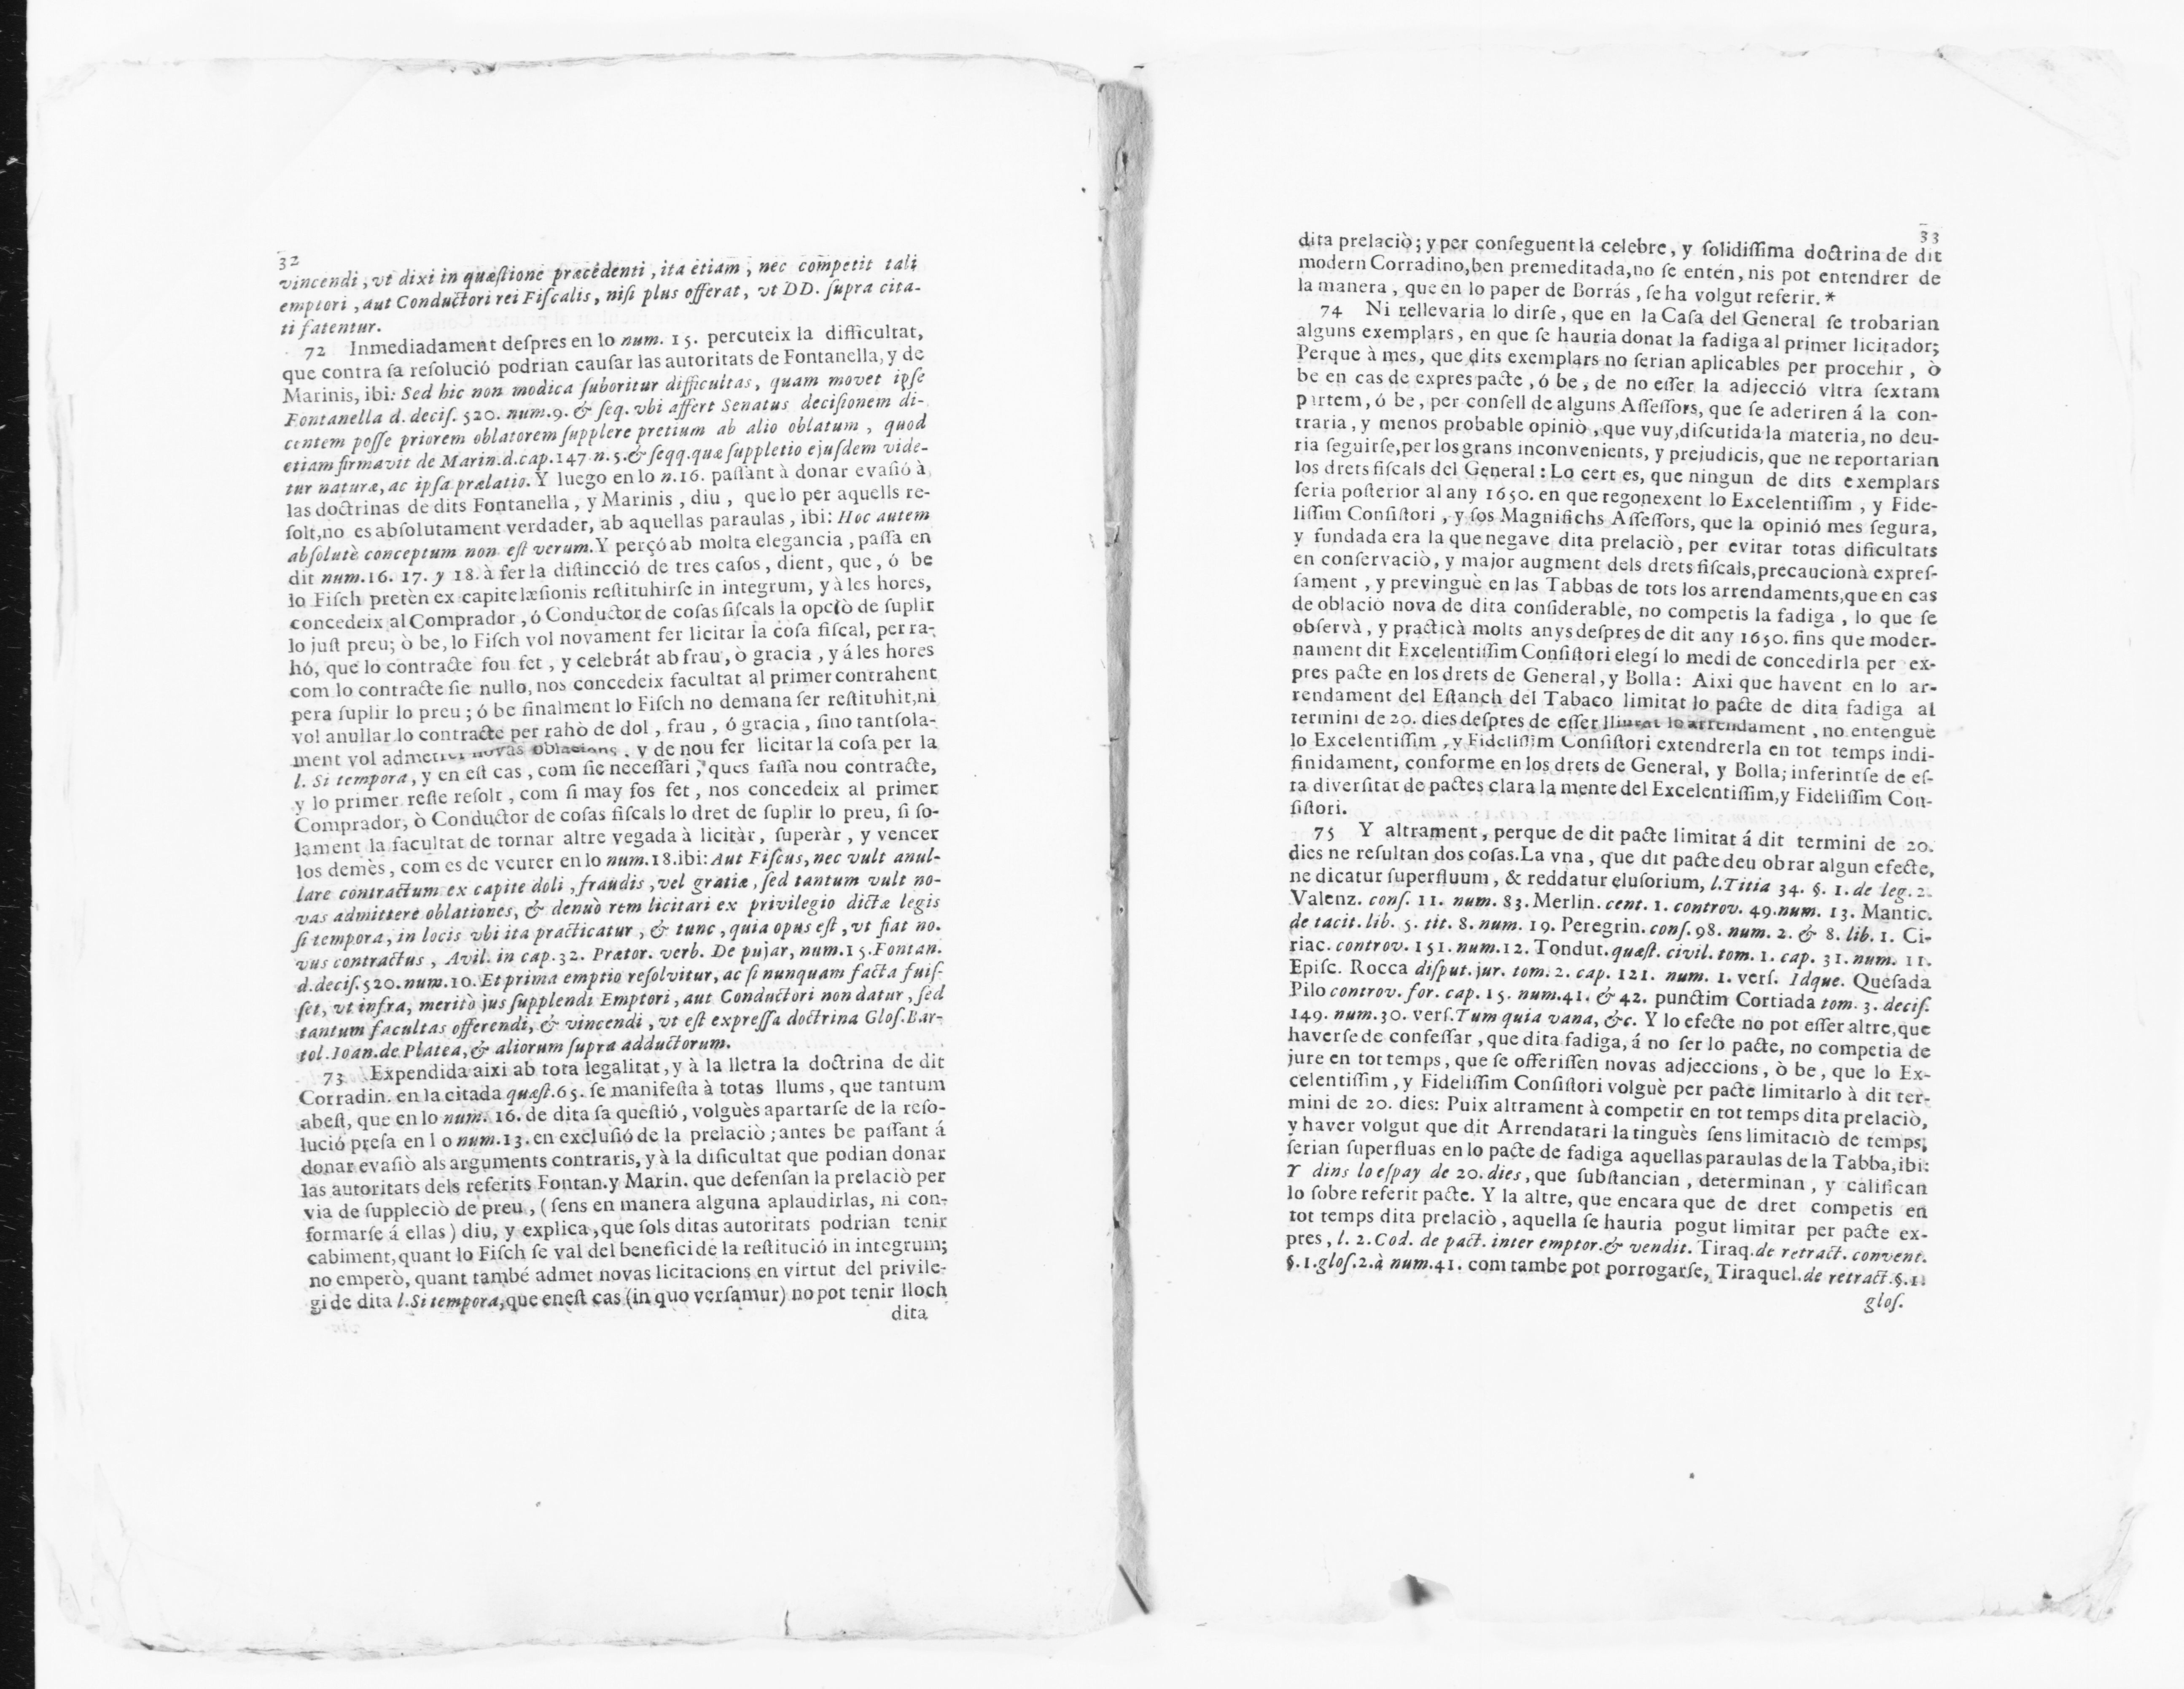 32
vincendi, vt dixi in quæſtione præcedenti, ita etiam, nec competit tali
emptori, aut Conductori rei Fiſcalis, niſi plus offerat, vt DD. ſupra cita-
ti fatentur.
72 Inmediadament deſpres en lo num. 15. percuteix la difficultat,
que contra ſa reſolució podrian cauſar las autoritats de Fontanella, y de
Marinis, ibi: Sed hic non modica ſuboritur difficultas, quam movet ipſe
Fontanella d. deciſ. 520. num.9. & ſeq. vbi affert Senatus deciſionem di-
centem poſſe priorem oblatorem ſupplere pretium ab alio oblatum, quod
etiam firmavit de Marin.d.cap.147 n.5.& ſeqq.quæ ſuppletio ejuſdem vide-
tur naturæ, ac ipſa prælatio. Y luego en lo n.16. paſſant à donar evaſió à
las doctrinas de dits Fontanella, y Marinis, diu, que lo per aquells re-
ſolt, no es abſolutament verdader, ab aquellas paraulas, ibi: Hoc autem
abſolutè conceptum non eſt verum. Y perçó ab molta elegancia, paſſa en
dit num.16. 17. y 18. à fer la diſtincció de tres caſos, dient, que, ó be
lo Fiſch pretèn ex capite læſionis reſtituhirſe in integrum, y à les hores,
concedeix al Comprador, ó Conductor de coſas fiſcals la opciò de ſuplir
lo juſt preu; ò be, lo Fiſch vol novament fer licitar la coſa fiſcal, per ra-
hó, que lo contracte fou fet, y celebrát ab frau, ò gracia, y á les hores
com lo contracte ſie nullo, nos concedeix facultat al primer contrahent
pera ſuplir lo preu; ó be finalment lo Fiſch no demana ſer reſtituhit, ni
vol anullar lo contracte per rahò de dol, frau, ó gracia, ſino tantſola-
ment vol admetrer novas oblacions, y de nou fer licitar la coſa per la
l. Si tempora, y en eſt cas, com ſie neceſſari, ques faſſa nou contracte,
y lo primer reſte reſolt, com ſi may fos fet, nos concedeix al primer
Comprador, ò Conductor de coſas fiſcals lo dret de ſuplir lo preu, ſi ſo-
lament la facultat de tornar altre vegada à licitàr, ſuperàr, y vencer
los demès, com es de veurer en lo num.18.ibi: Aut Fiſcus, nec vult anul-
lare contractum ex capite doli, fraudis, vel gratiæ, ſed tantum vult no-
vas admittere oblationes, & denuò rem licitari ex privilegio dictæ legis
ſi tempora, in locis vbi ita practicatur, & tunc, quia opus eſt, vt fiat no-
vus contractus, Avil. in cap.32. Prætor. verb. De pujar, num.15.Fontan.
d.deciſ.520.num.10. Et prima emptio reſolvitur, ac ſi nunquam facta fuiſ-
ſet, vt infra, meritò jus ſupplendi Emptori, aut Conductori non datur, ſed
tantum facultas offerendi, & vincendi, vt eſt expreſſa doctrina Gloſ.Bar-
tol.Ioan.de Platea, & aliorum ſupra adductorum.
73 Expendida aixi ab tota legalitat, y à la lletra la doctrina de dit
Corradin. en la citada quæſt.65. ſe manifeſta à totas llums, que tantum
abeſt, que en lo num. 16. de dita ſa queſtió, volguès apartarſe de la reſo-
lució preſa en l o num.13. en excluſió de la prelaciò; antes be paſſant á
donar evaſiò als arguments contraris, y à la dificultat que podian donar
las autoritats dels referits Fontan.y Marin. que defenſan la prelaciò per
via de ſuppleciò de preu, (ſens en manera alguna aplaudirlas, ni con-
formarſe á ellas) diu, y explica, que ſols ditas autoritats podrian tenir
cabiment, quant lo Fiſch ſe val del benefici de la reſtitució in integrum;
no emperò, quant també admet novas licitacions en virtut del privile-
gi de dita l.Si tempora, que en eſt cas (in quo verſamur) no pot tenir lloch
dita
33
dita prelaciò; y per conſeguent la celebre, y ſolidiſſima doctrina de dit
modern Corradino, ben premeditada, no ſe entén, nis pot entendrer de
la manera, que en lo paper de Borrás, ſe ha volgut referir.*
74 Ni rellevaria lo dirſe, que en la Caſa del General ſe trobarian
alguns exemplars, en que ſe hauria donat la fadiga al primer licitador;
Perque à mes, que dits exemplars no ſerian aplicables per procehir, ò
be en cas de expres pacte, ó be, de no eſſer la adjecció vltra ſextam
partem, ó be, per conſell de alguns Aſſeſſors, que ſe aderiren á la con-
traria, y menos probable opiniò, que vuy, diſcutida la materia, no deu-
ria ſeguirſe, per los grans inconvenients, y prejudicis, que ne reportarian
los drets fiſcals del General: Lo cert es, que ningun de dits exemplars
ſeria poſterior al any 1650. en que regonexent lo Excelentiſſim, y Fide-
liſſim Conſiſtori, y ſos Magnifichs Aſſeſſors, que la opinió mes ſegura,
y fundada era la que negave dita prelaciò, per evitar totas dificultats
en conſervaciò, y major augment dels drets fiſcals, precaucionà expreſ-
ſament, y previnguè en las Tabbas de tots los arrendaments, que en cas
de oblaciò nova de dita conſiderable, no competis la fadiga, lo que ſe
obſervà, y practicà molts anys deſpres de dit any 1650. fins que moder-
nament dit Excelentiſſim Conſiſtori elegí lo medi de concedirla per ex-
pres pacte en los drets de General, y Bolla: Aixi que havent en lo ar-
rendament del Eſtanch del Tabaco limitat lo pacte de dita fadiga al
termini de 20. dies deſpres de eſſer lliurat lo arrendament, no entengue
lo Excelentiſſim, y Fideliſſim Conſiſtori extendrerla en tot temps indi-
finidament, conforme en los drets de General, y Bolla; inferintſe de eſ-
ta diverſitat de pactes clara la mente del Excelentiſſim, y Fideliſſim Con-
ſiſtori.
75 Y altrament, perque de dit pacte limitat á dit termini de 20.
dies ne reſultan dos coſas. La vna, que dit pacte deu obrar algun efecte,
ne dicatur ſuperfluum, & reddatur eluſorium, l.Titia 34. §. 1. de leg. 2.
Valenz. conſ. 11. num. 83. Merlin. cent. 1. controv. 49.num. 13. Mantic.
de tacit. lib. 5. tit. 8. num. 19. Peregrin. conſ. 98. num. 2. & 8. lib. 1. Ci-
riac. controv. 151. num.12. Tondut. quæſt. civil. tom. 1. cap. 31. num. 11.
Epiſc. Rocca diſput. jur. tom. 2. cap. 121. num. 1. verſ. Idque. Queſada
Pilo controv. for. cap. 15. num.41. & 42. punctim Cortiada tom. 3. deciſ.
149. num.30. verſ.Tum quia vana, &c. Y lo efecte no pot eſſer altre, que
haverſe de confeſſar, que dita fadiga, á no ſer lo pacte, no competia de
jure en tot temps, que ſe offeriſſen novas adjeccions, ò be, que lo Ex-
celentiſſim, y Fideliſſim Conſiſtori volguè per pacte limitarlo à dit ter-
mini de 20. dies: Puix altrament à competir en tot temps dita prelaciò,
y haver volgut que dit Arrendatari la tinguès ſens limitaciò de temps,
ſerian ſuperfluas en lo pacte de fadiga aquellas paraulas de la Tabba, ibi:
Y dins lo eſpay de 20. dies, que ſubſtancian, determinan, y califican
lo ſobre referit pacte. Y la altre, que encara que de dret competis en
tot temps dita prelaciò, aquella ſe hauria pogut limitar per pacte ex-
pres, l. 2. Cod. de pact. inter emptor.& vendit. Tiraq.de retract. convent.
§.1.gloſ.2.à num.41. com tambe pot porrogarſe, Tiraquel.de retract.§.1.
gloſ.